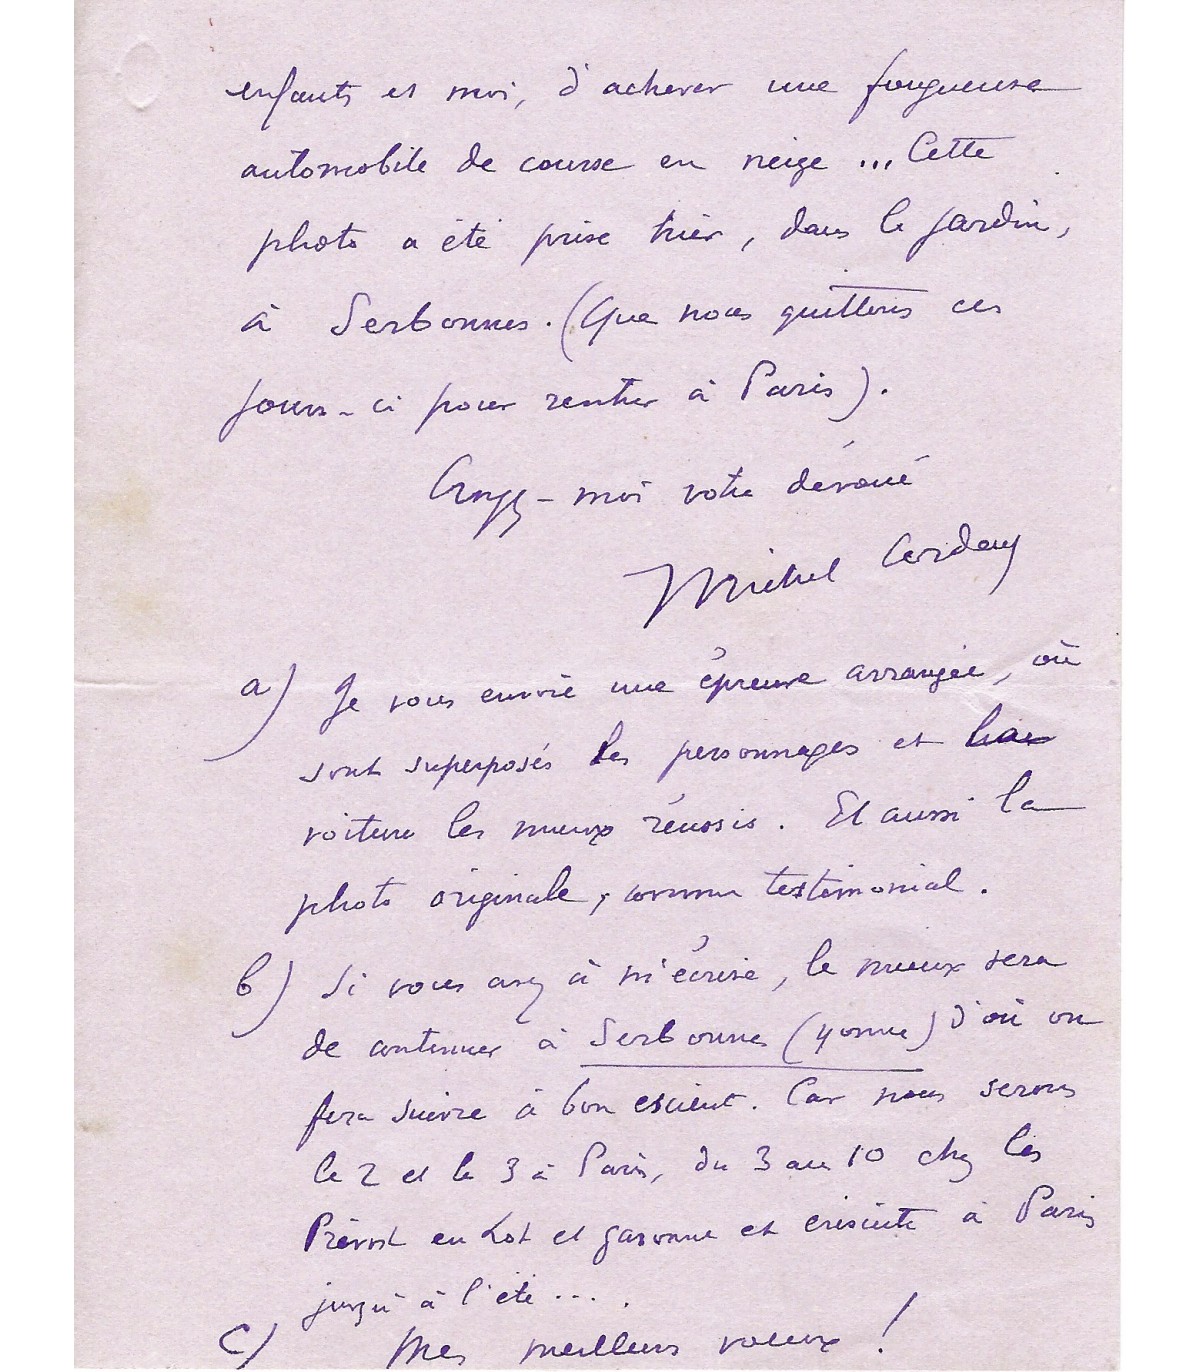 enfants et moi, d'achever une fougueuse
automobile de course en neige ... Cette
photo a été prise hier, dans le jardin,
à Serbonnes. (Que nous quittons ces
jours-ci pour rentrer à Paris).
Croyez-moi votre dévoué
Michel Corday
a) Je vous envoie une épreuve arrangée, où
sont superposés les personnages et la
voiture les mieux réussis. Et aussi la
photo originale, comme testimonial.
b) Si vous avez à m'écrire, le mieux sera
de continuer à Serbonnes (Yonne) d'où on
fera suivre à bon escient. Car nous serons
le 2 et le 3 à Paris, du 3 au 10 chez les
Prévost en Lot et Garonne et ensuite à Paris
jusqu'à l'été ....
c) Mes meilleurs vœux !